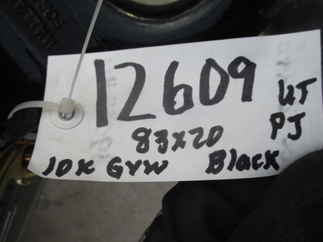 12609 UT
83x20 PJ
10K GVW Black